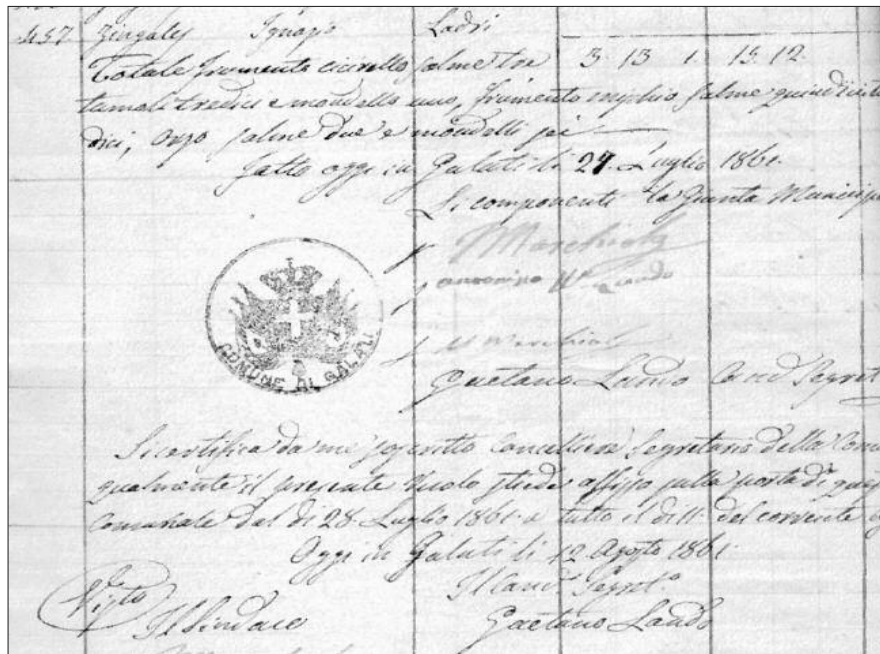 457 Zingales Ignazio Ladri
Totale frumento cicirello salme tre 3. 13 1. 15. 12.
tumoli tredici e mondello uno, frumento miglio salme quindici t
dici, orzo salme due e mondelli sei
Fatto oggi in Galati li 27. Luglio 1861.
Li componenti la Giunta Municip
COMUNE DI GALATI
Gaetano Lando Canc. Segret
Si certifica da me soscritto Cancelliere Segretario della Comu
qualmente il presente Ruolo stiede affisso sulla porta di ques
Comunale dal di 28. Luglio 1861. a tutto il di 11. del corrente
Oggi in Galati li 12 Agosto 1861.
Visto
Il Canc. Segret.
Il Sindaco
Gaetano Lando